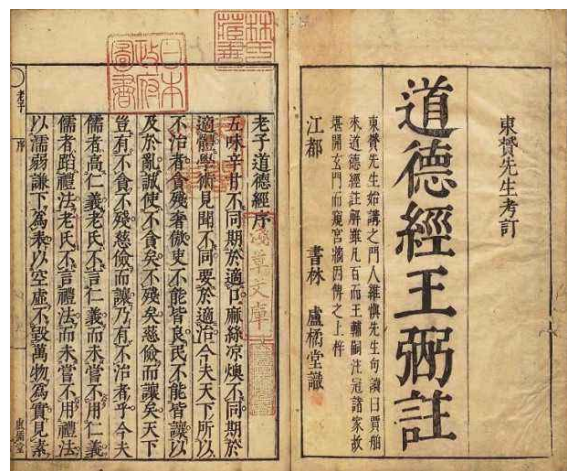 東贇先生考訂
道德經王弼註
東贇先生始講之門人維愼先生句讀曰賈舶
來道德經註解雖凡百而王輔嗣注冠諸家故
堪開玄門而窺宮牆因俾之上梓
江都 書林 盧橘堂識
日本
政府
圖書
淺草文庫
老子道德經序
五味辛甘不同期於適口麻絲凉燠不同期於
適體學術見聞不同要於適治今夫天下所以
不治者貪殘奢傲吏不能皆良民不能皆讓以
及於亂誠使不貪矣不殘矣慈儉而讓矣天下
豈有不貪不殘慈儉而讓乃有不治者乎今夫
儒者高仁義老氏不言仁義而未嘗不用仁義
儒者蹈禮法老氏不言禮法而未嘗不用禮法
以濡弱謙下爲表以空虛不毀萬物爲實見素
老子
序